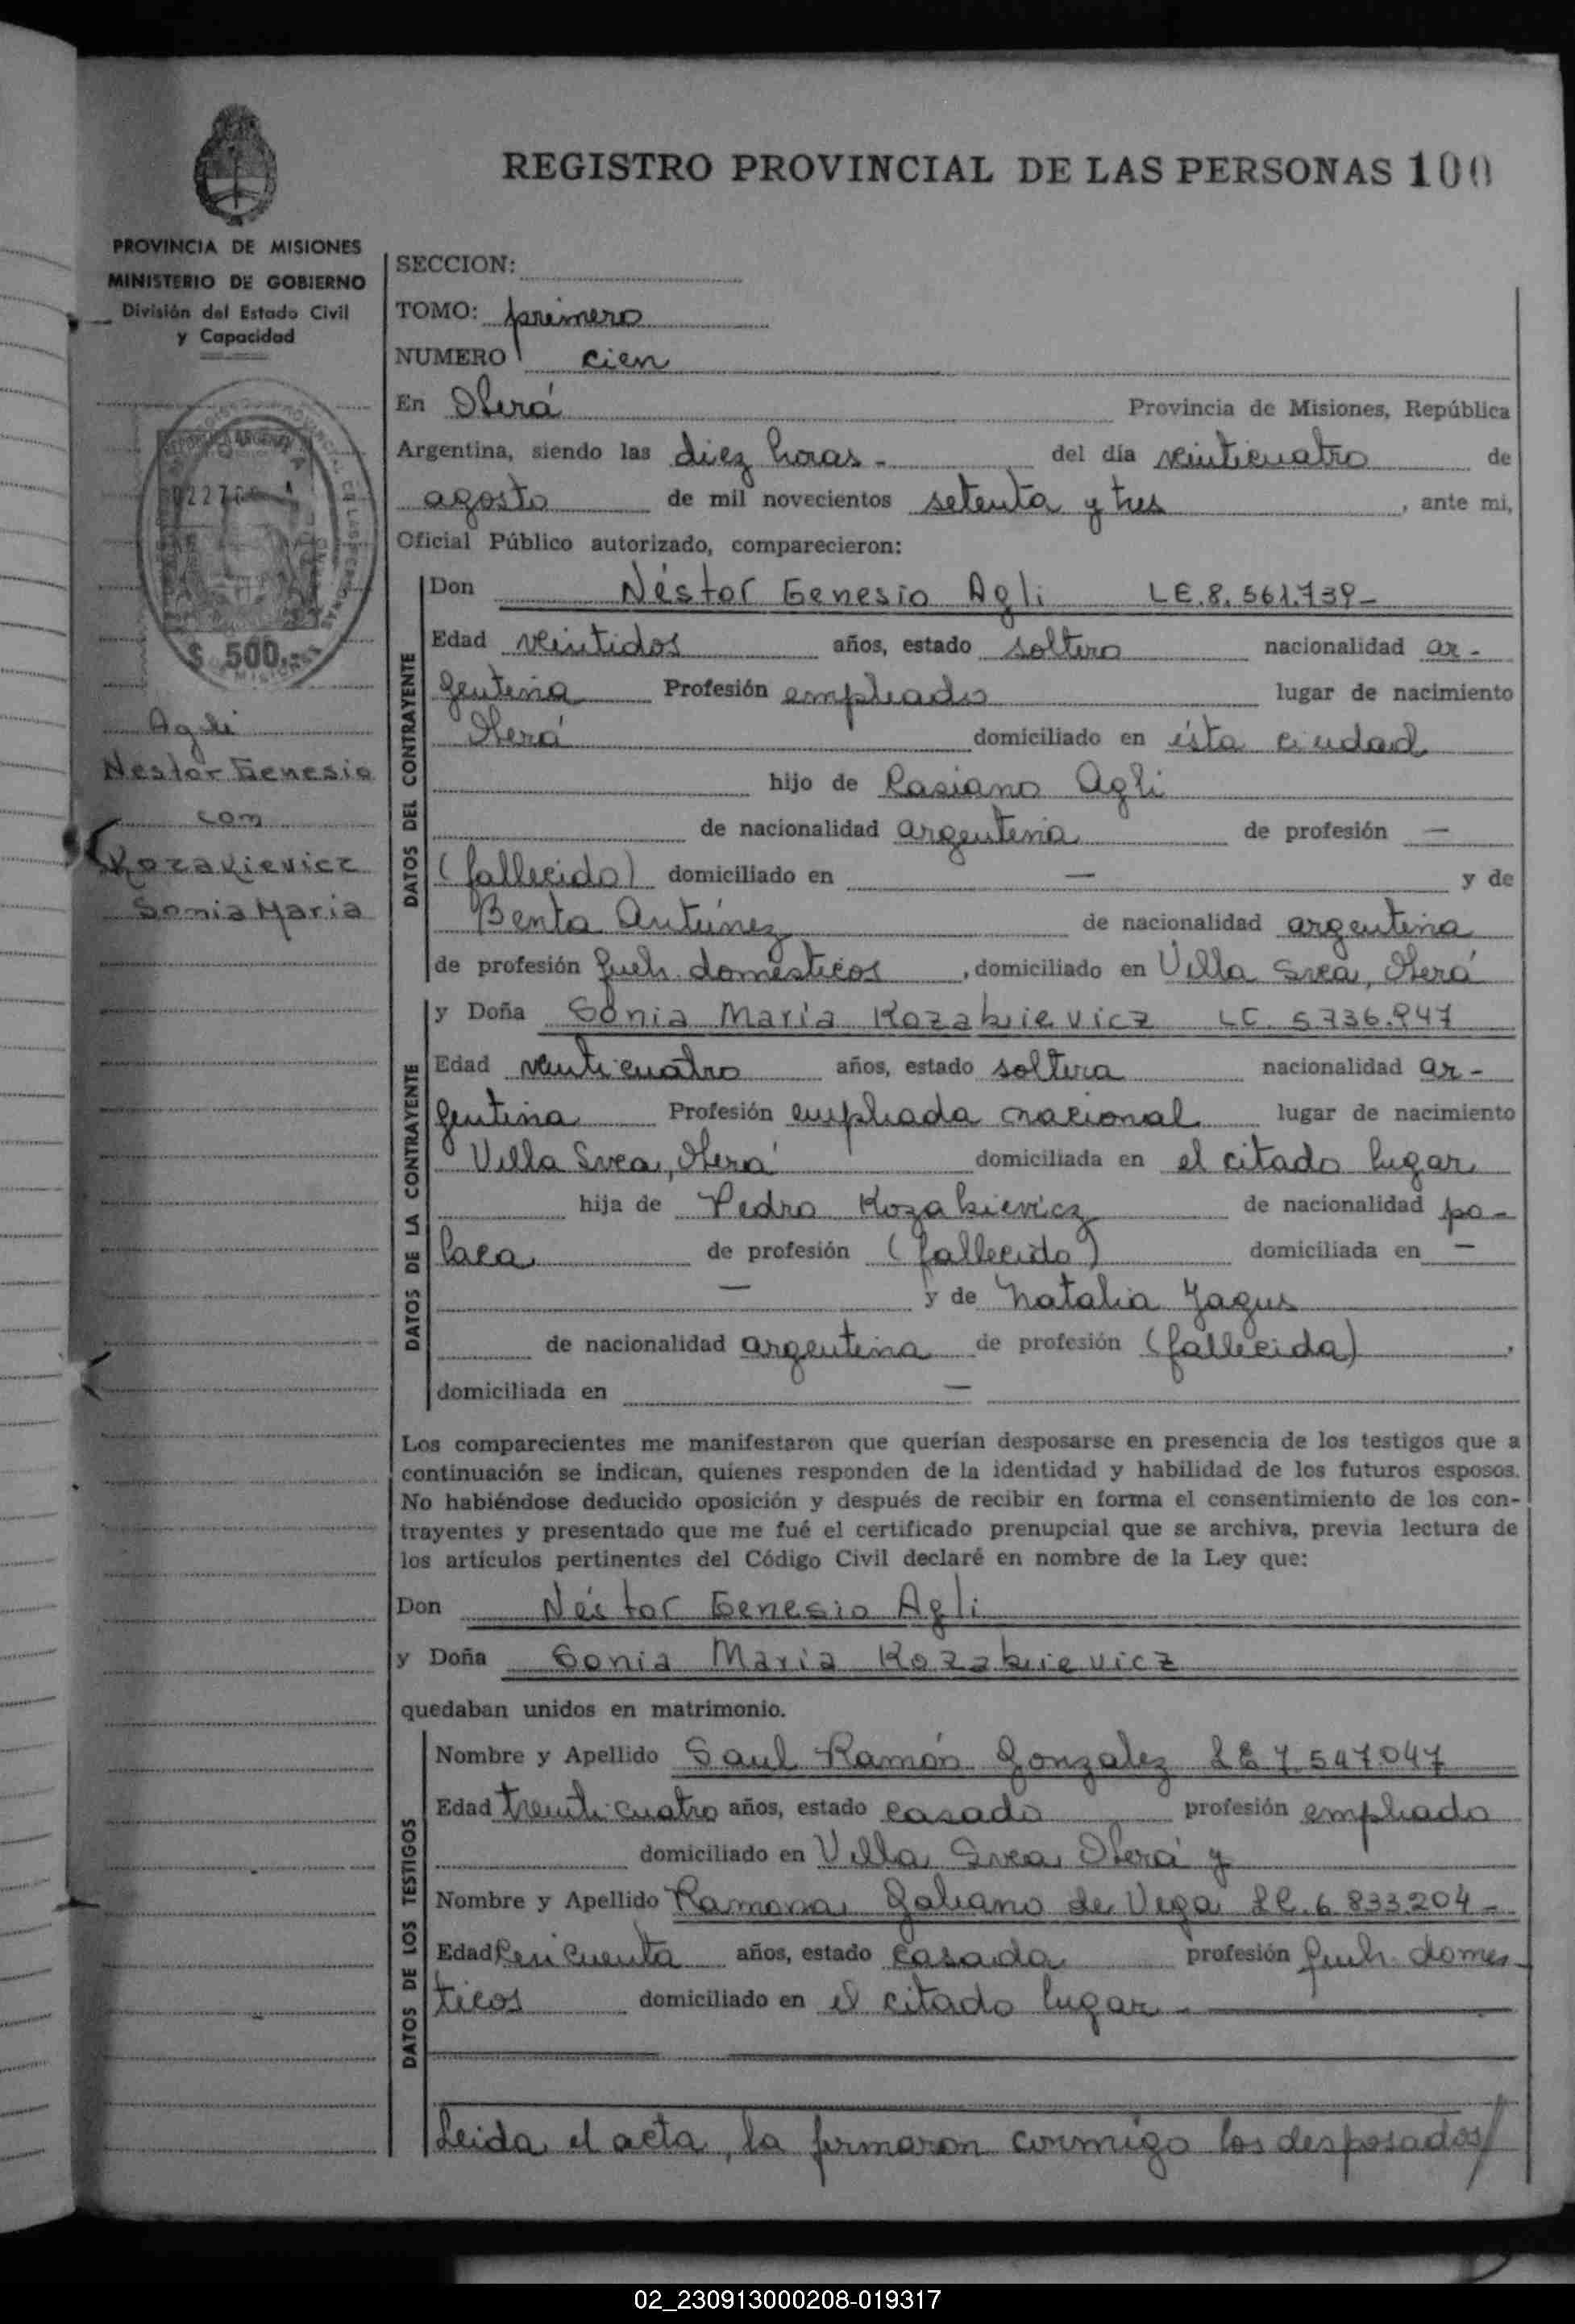 REGISTRO PROVINCIAL DE LAS PERSONAS 100
PROVINCIA DE MISIONES
MINISTERIO DE GOBIERNO
División del Estado Civil
y Capacidad
$ 500,-
Agli
Nestor Genesio
con
Kozakievicz
Sonia Maria
SECCION:
TOMO: primero
NUMERO cien
En Oberá Provincia de Misiones, República
Argentina, siendo las diez horas - del día veinticuatro de
agosto de mil novecientos setenta y tres, ante mi,
Oficial Público autorizado, comparecieron:
DATOS DEL CONTRAYENTE
Don Néstor Genesio Agli LE.8.561.739-
Edad veintidos años, estado soltero nacionalidad ar-
gentina Profesión empleado lugar de nacimiento
Oberá domiciliado en ésta ciudad
hijo de Casiano Agli
de nacionalidad argentina de profesión —
(fallecido) domiciliado en — y de
Benta Antúnez de nacionalidad argentina
de profesión queh. domésticos, domiciliado en Villa Svea, Oberá
DATOS DE LA CONTRAYENTE
y Doña Sonia María Kozakievicz LC. 5736.947
Edad veinticuatro años, estado soltera nacionalidad ar-
gentina Profesión empleada nacional lugar de nacimiento
Villa Svea, Oberá domiciliada en el citado lugar
hija de Pedro Kozakievicz de nacionalidad po-
laca de profesión (fallecido) domiciliada en —
— y de Natalia Jagus
de nacionalidad argentina de profesión (fallecida).
domiciliada en —
Los comparecientes me manifestaron que querían desposarse en presencia de los testigos que a
continuación se indican, quienes responden de la identidad y habilidad de los futuros esposos.
No habiéndose deducido oposición y después de recibir en forma el consentimiento de los con-
trayentes y presentado que me fué el certificado prenupcial que se archiva, previa lectura de
los artículos pertinentes del Código Civil declaré en nombre de la Ley que:
Don Néstor Genesio Agli
y Doña Sonia Maria Kozakievicz
quedaban unidos en matrimonio.
DATOS DE LOS TESTIGOS
Nombre y Apellido Saul Ramón Gonzalez LE 7.547.047
Edad trenticuatro años, estado casado profesión empleado
domiciliado en Villa Svea, Oberá y
Nombre y Apellido Ramona Galeano de Vega LC. 6.833.204-
Edad cincuenta años, estado casada profesión queh. domes
ticos domiciliado en el citado lugar.
Leida el acta, la firmaron conmigo los desposados/
02_230913000208-019317